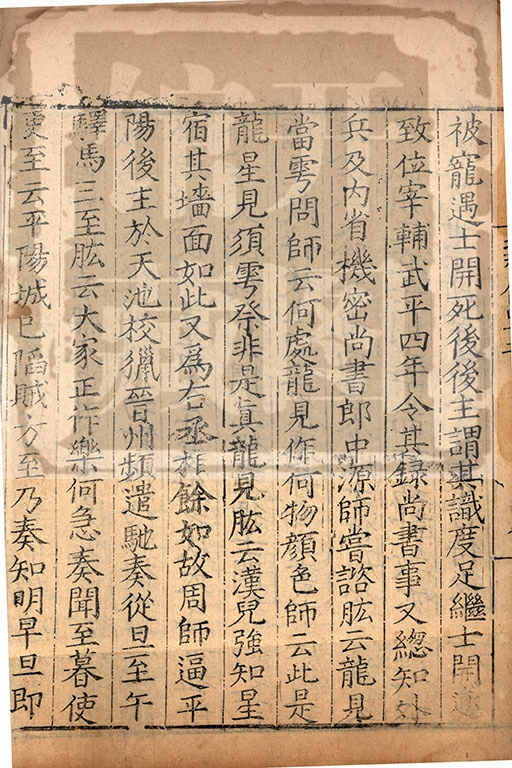 被寵遇士開死後後主謂其識度足繼士開遂
致位宰輔武平四年令其録尚書事又緫知外
兵及内省機密尚書郎中源師嘗諮肱云龍見
當雩問師云何處龍見作何物顔色師云此是
龍星見須雩祭非是眞龍見肱云漢兒強知星
宿其墻面如此又爲右丞相餘如故周師逼平
陽後主於天池校獵晉州頻遣馳奏從旦至午
驛馬三至肱云大家正作樂何急奏聞至暮使
更至云平陽城已陷賊方至乃奏知明早旦即